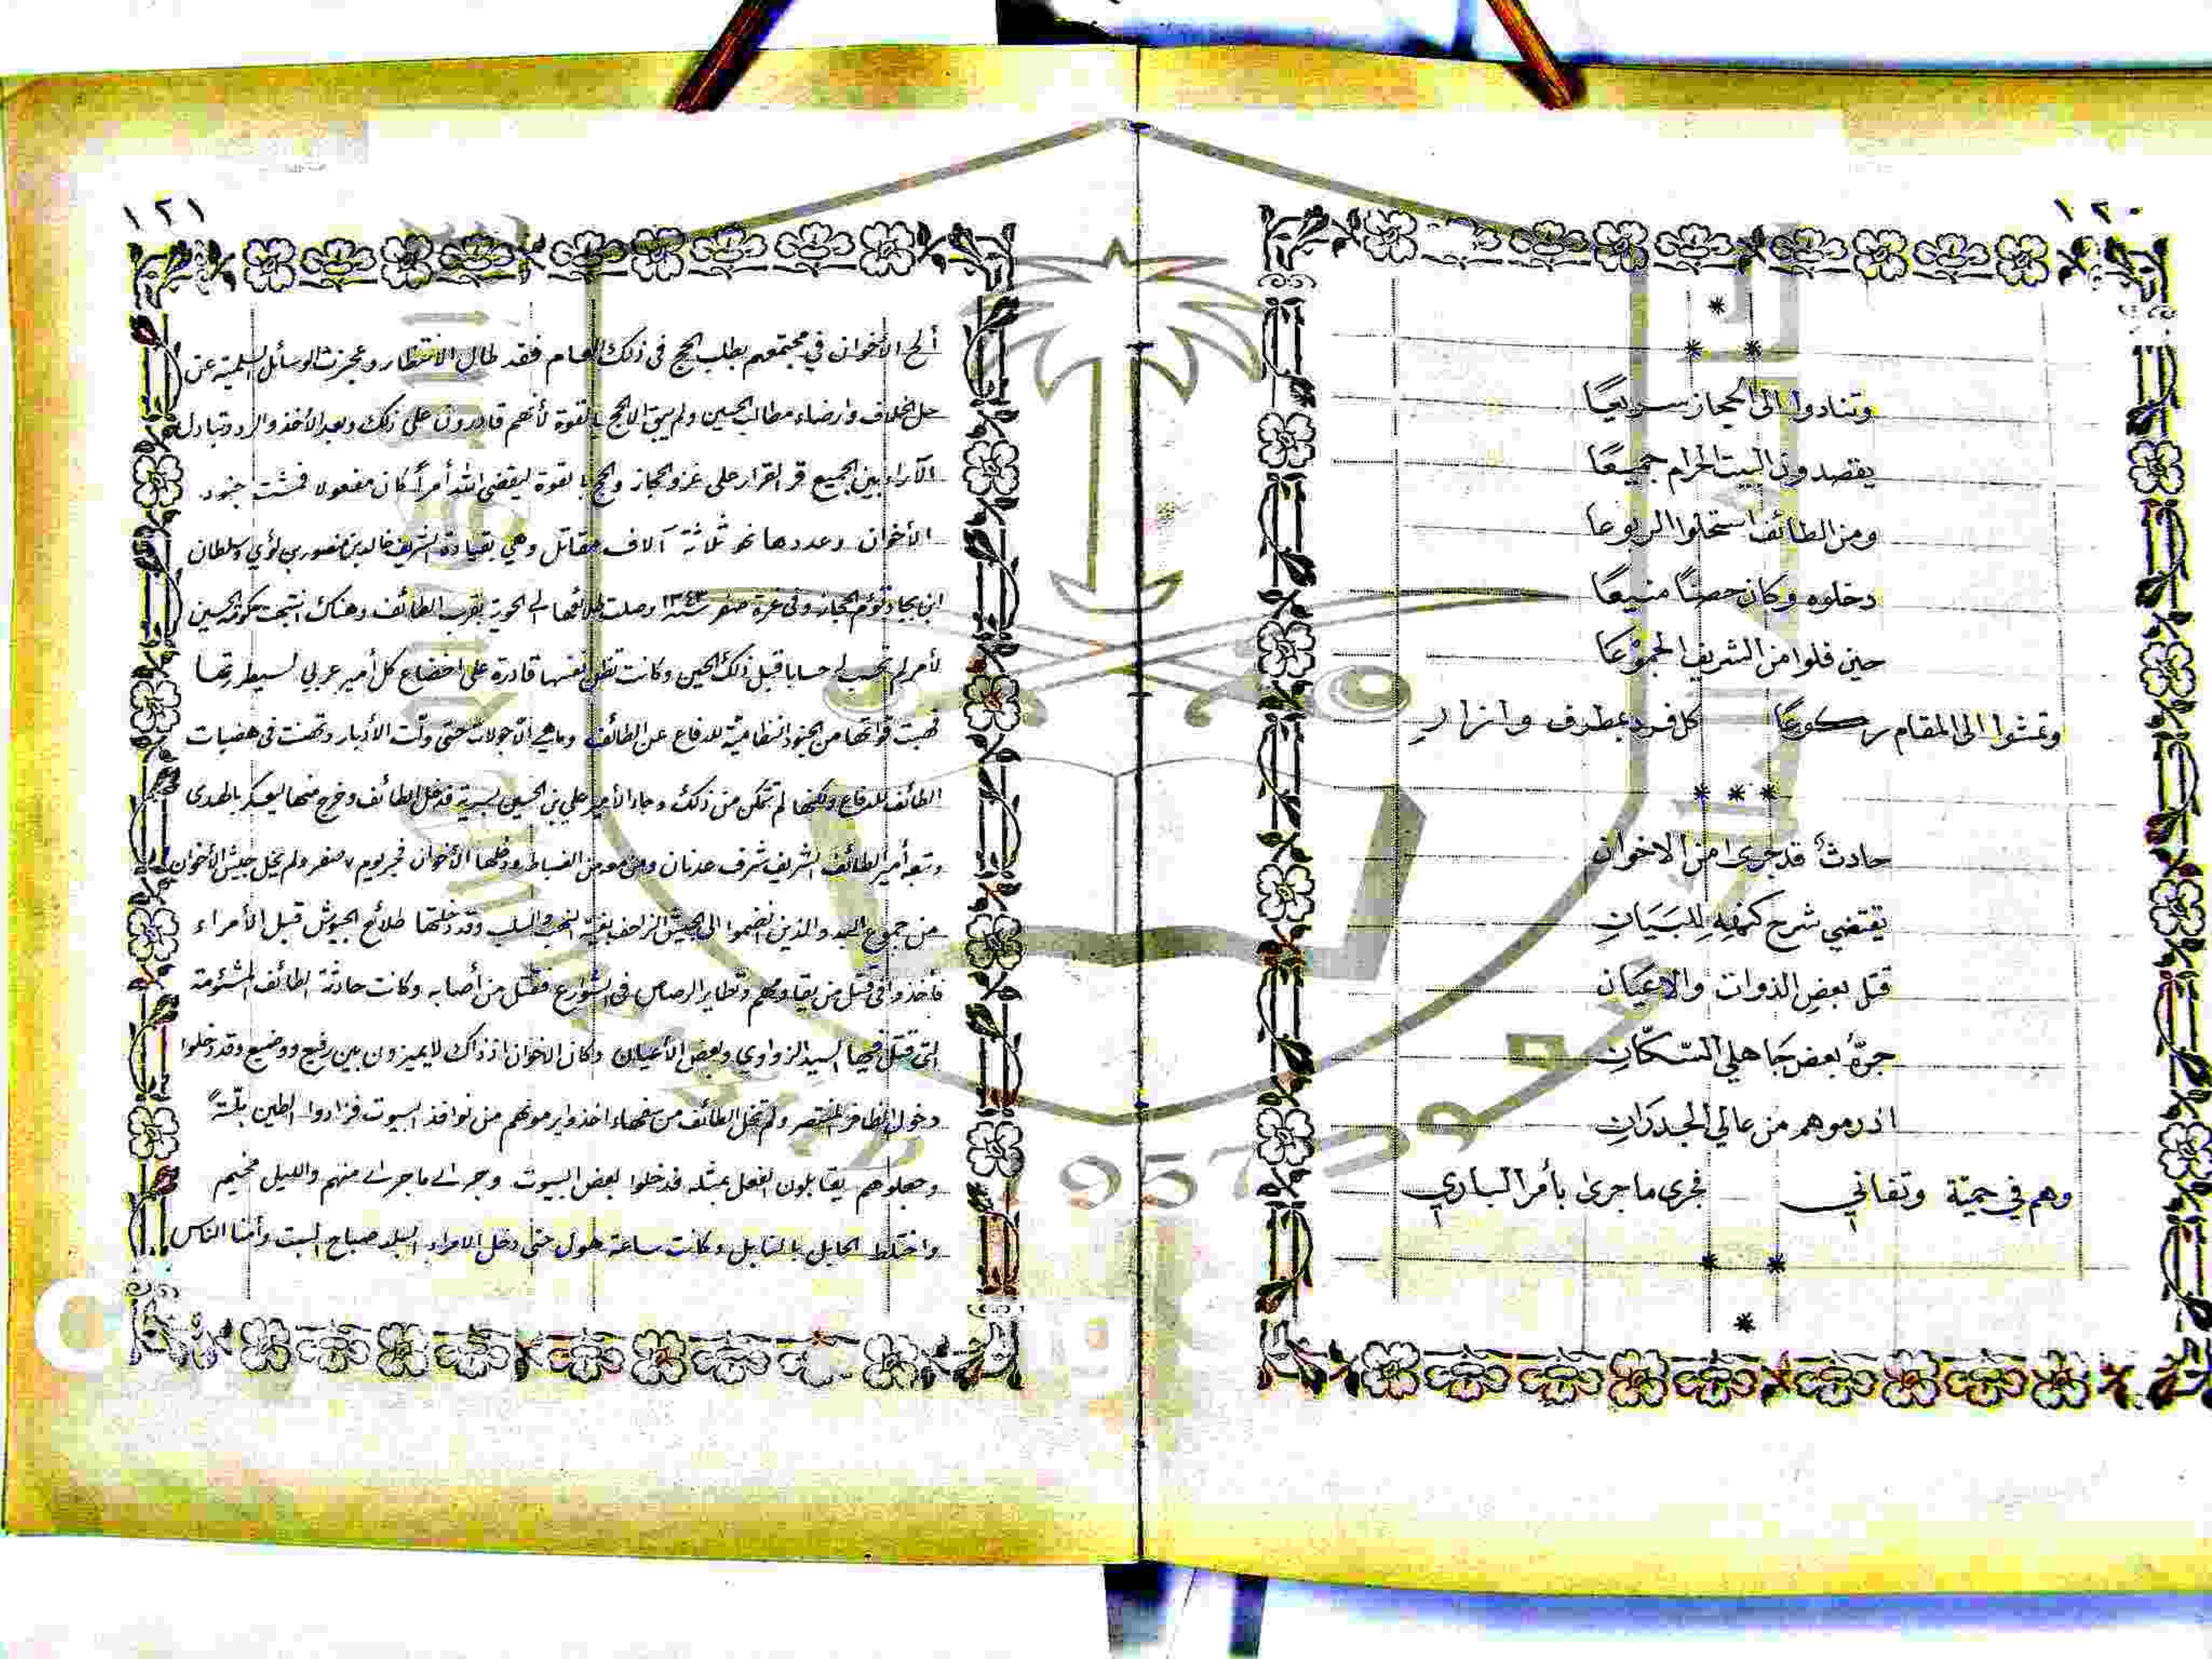 ١٢٠
وتنادوا الى الحجاز سريعًا
يقصدون البيت الحرام جميعًا
ومن الطائف استحلوا الربوعا
دخلوه وكان حصنًا منيعًا
حين فلوا من الشريف الجموعًا
وتمشوا الى المقام ركوعًا كل فرد بمطرف وازار
حادثٌ قد جرى من الاخوان
يقتضي شرح كنهه للبَيَانِ
قتل بعضِ الذوات والاعيَان
جرّهُ بعض جَاهلي السّكّانِ
اذ رموهم من عالي الجدرَانِ
وهم في حميّة وتفاني فجرى ما جرى بأمر الباري
١٢١
ألح الأخوان في مجتمعهم بطلب الحج في ذلك العام فقد طال الانتظار وعجزت الوسائل السلمية عن
حل الخلاف وارضاء مطالب الحسين ولم يبق الا الحج بالقوة لأنهم قادرون على ذلك وبعد الأخذ والرد وتبادل
الآراء بين الجميع قر القرار على غزو الحجاز والحج بالقوة ليقضي الله أمراً كان مفعولا فمشت جنود
الأخوان وعددها نحو ثلاثة آلاف مقاتل وهي بقيادة الشريف خالد بن منصور بن لؤي وسلطان
ابن بجاد تؤم الحجاز وفي غرة صفر سنة ١٣٤٣ وصلت طلائعها الى الحوية بقرب الطائف وهناك انتبهت حكومة الحسين
لأمر لم تحسب له حسابا قبل ذلك الحين وكانت تظن نفسها قادرة على اخضاع كل أمير عربي لسيطرتها
فهبت قواتها من الجنود النظامية للدفاع عن الطائف وما هي الا جولات حتى ولت الأدبار وتحصنت في هضبات
الطائف للدفاع ولكنها لم تتمكن من ذلك وجاء الأمير علي بن الحسين بسرية فدخل الطائف وخرج منها ليعسكر بالهدى
وتبعه أمير الطائف الشريف شرف عدنان ومن معه من الضباط ودخلها الأخوان فجر يوم ٧ صفر ولم يخل جيش الأخوان
من جموع البدو الذين انضموا الى الجيش الزاحف بغية النهب والسلب وقد دخلتها طلائع الجيوش قبل الأمراء
فأخذوا في قتل من يقاومهم وتطاير الرصاص في الشوارع فقتل من أصابه وكانت حادثة الطائف المشئومة
التي قتل فيها السيد الزواوي وبعض الأعيان وكان الاخوان اذ ذاك لا يميزون بين رفيع ووضيع وقد دخلوا
دخول الظافر المنتصر ولم تخل الطائف من سفهاء اخذوا يرمونهم من نوافذ البيوت فزادوا الطين بلّةً
وجعلوهم يقابلون الفعل بمثله فدخلوا بعض البيوت وجرى ما جرى منهم والليل مخيم
واختلط الحابل بالنابل وكانت ساعة هول حتى دخل الامراء البلد صباح السبت وأمنا الناس